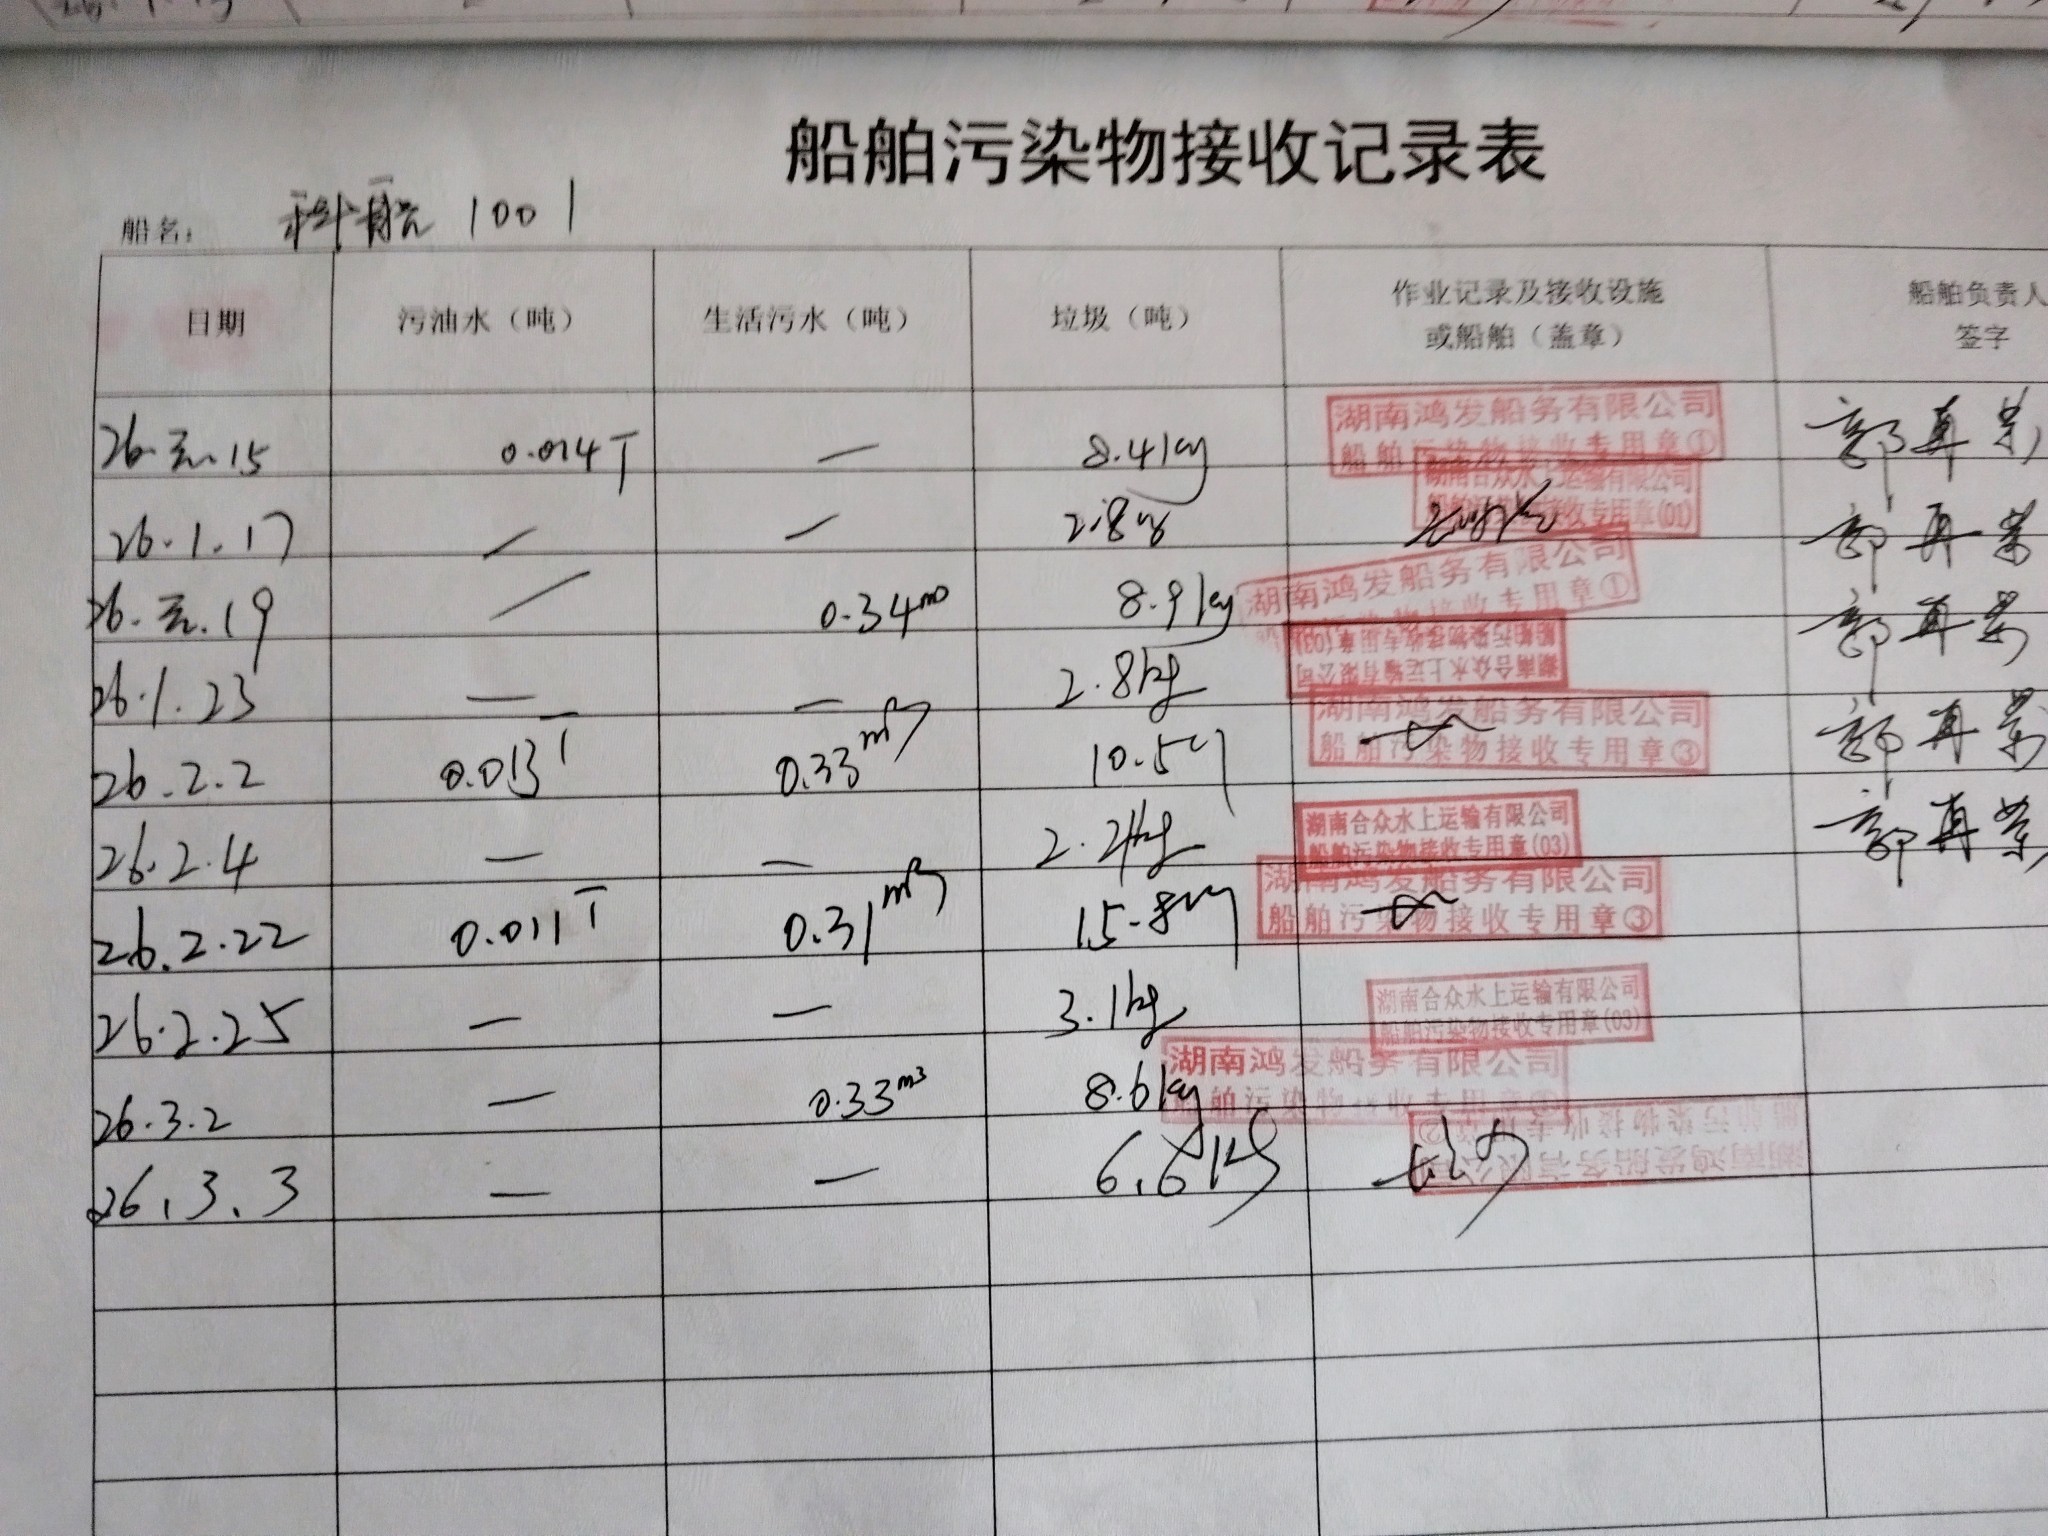 船舶污染物接收记录表
船名： 科航 1001
日期 污油水（吨） 生活污水（吨） 垃圾（吨） 作业记录及接收设施或船舶（盖章） 船舶负责人签字
26.元.15 0.014T — 8.4kg 湖南鸿发船务有限公司 船舶污染物接收专用章①
26.1.17 — — 2.8kg 湖南合众水上运输有限公司 船舶污染物接收专用章(01)
26.元.19 — 0.34m³ 8.9kg 湖南鸿发船务有限公司 船舶污染物接收专用章①
26.1.23 — — 2.8kg 湖南合众水上运输有限公司 船舶污染物接收专用章(03)
26.2.2 0.013T 0.33m³ 10.5kg 湖南鸿发船务有限公司 船舶污染物接收专用章③
26.2.4 — — 2.2kg 湖南合众水上运输有限公司 船舶污染物接收专用章(03)
26.2.22 0.011T 0.31m³ 15.8kg 湖南鸿发船务有限公司 船舶污染物接收专用章③
26.2.25 — — 3.1kg 湖南合众水上运输有限公司 船舶污染物接收专用章(03)
26.3.2 — 0.33m³ 8.6kg 湖南鸿发船务有限公司 船舶污染物接收专用章
26.3.3 — — 6.6kg 湖南鸿发船务有限公司 船舶污染物接收专用章②